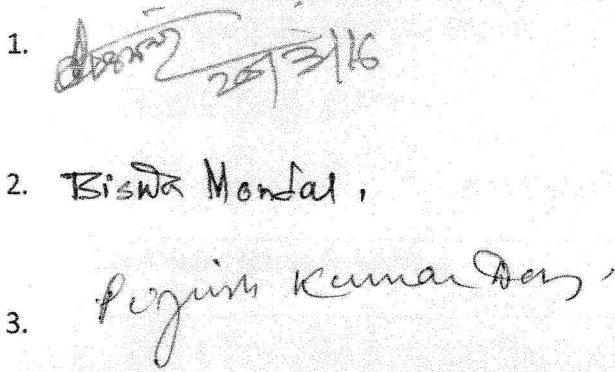 1. 20/3/16
2. Biswa Mondal,
3. Piyush Kumar Das,